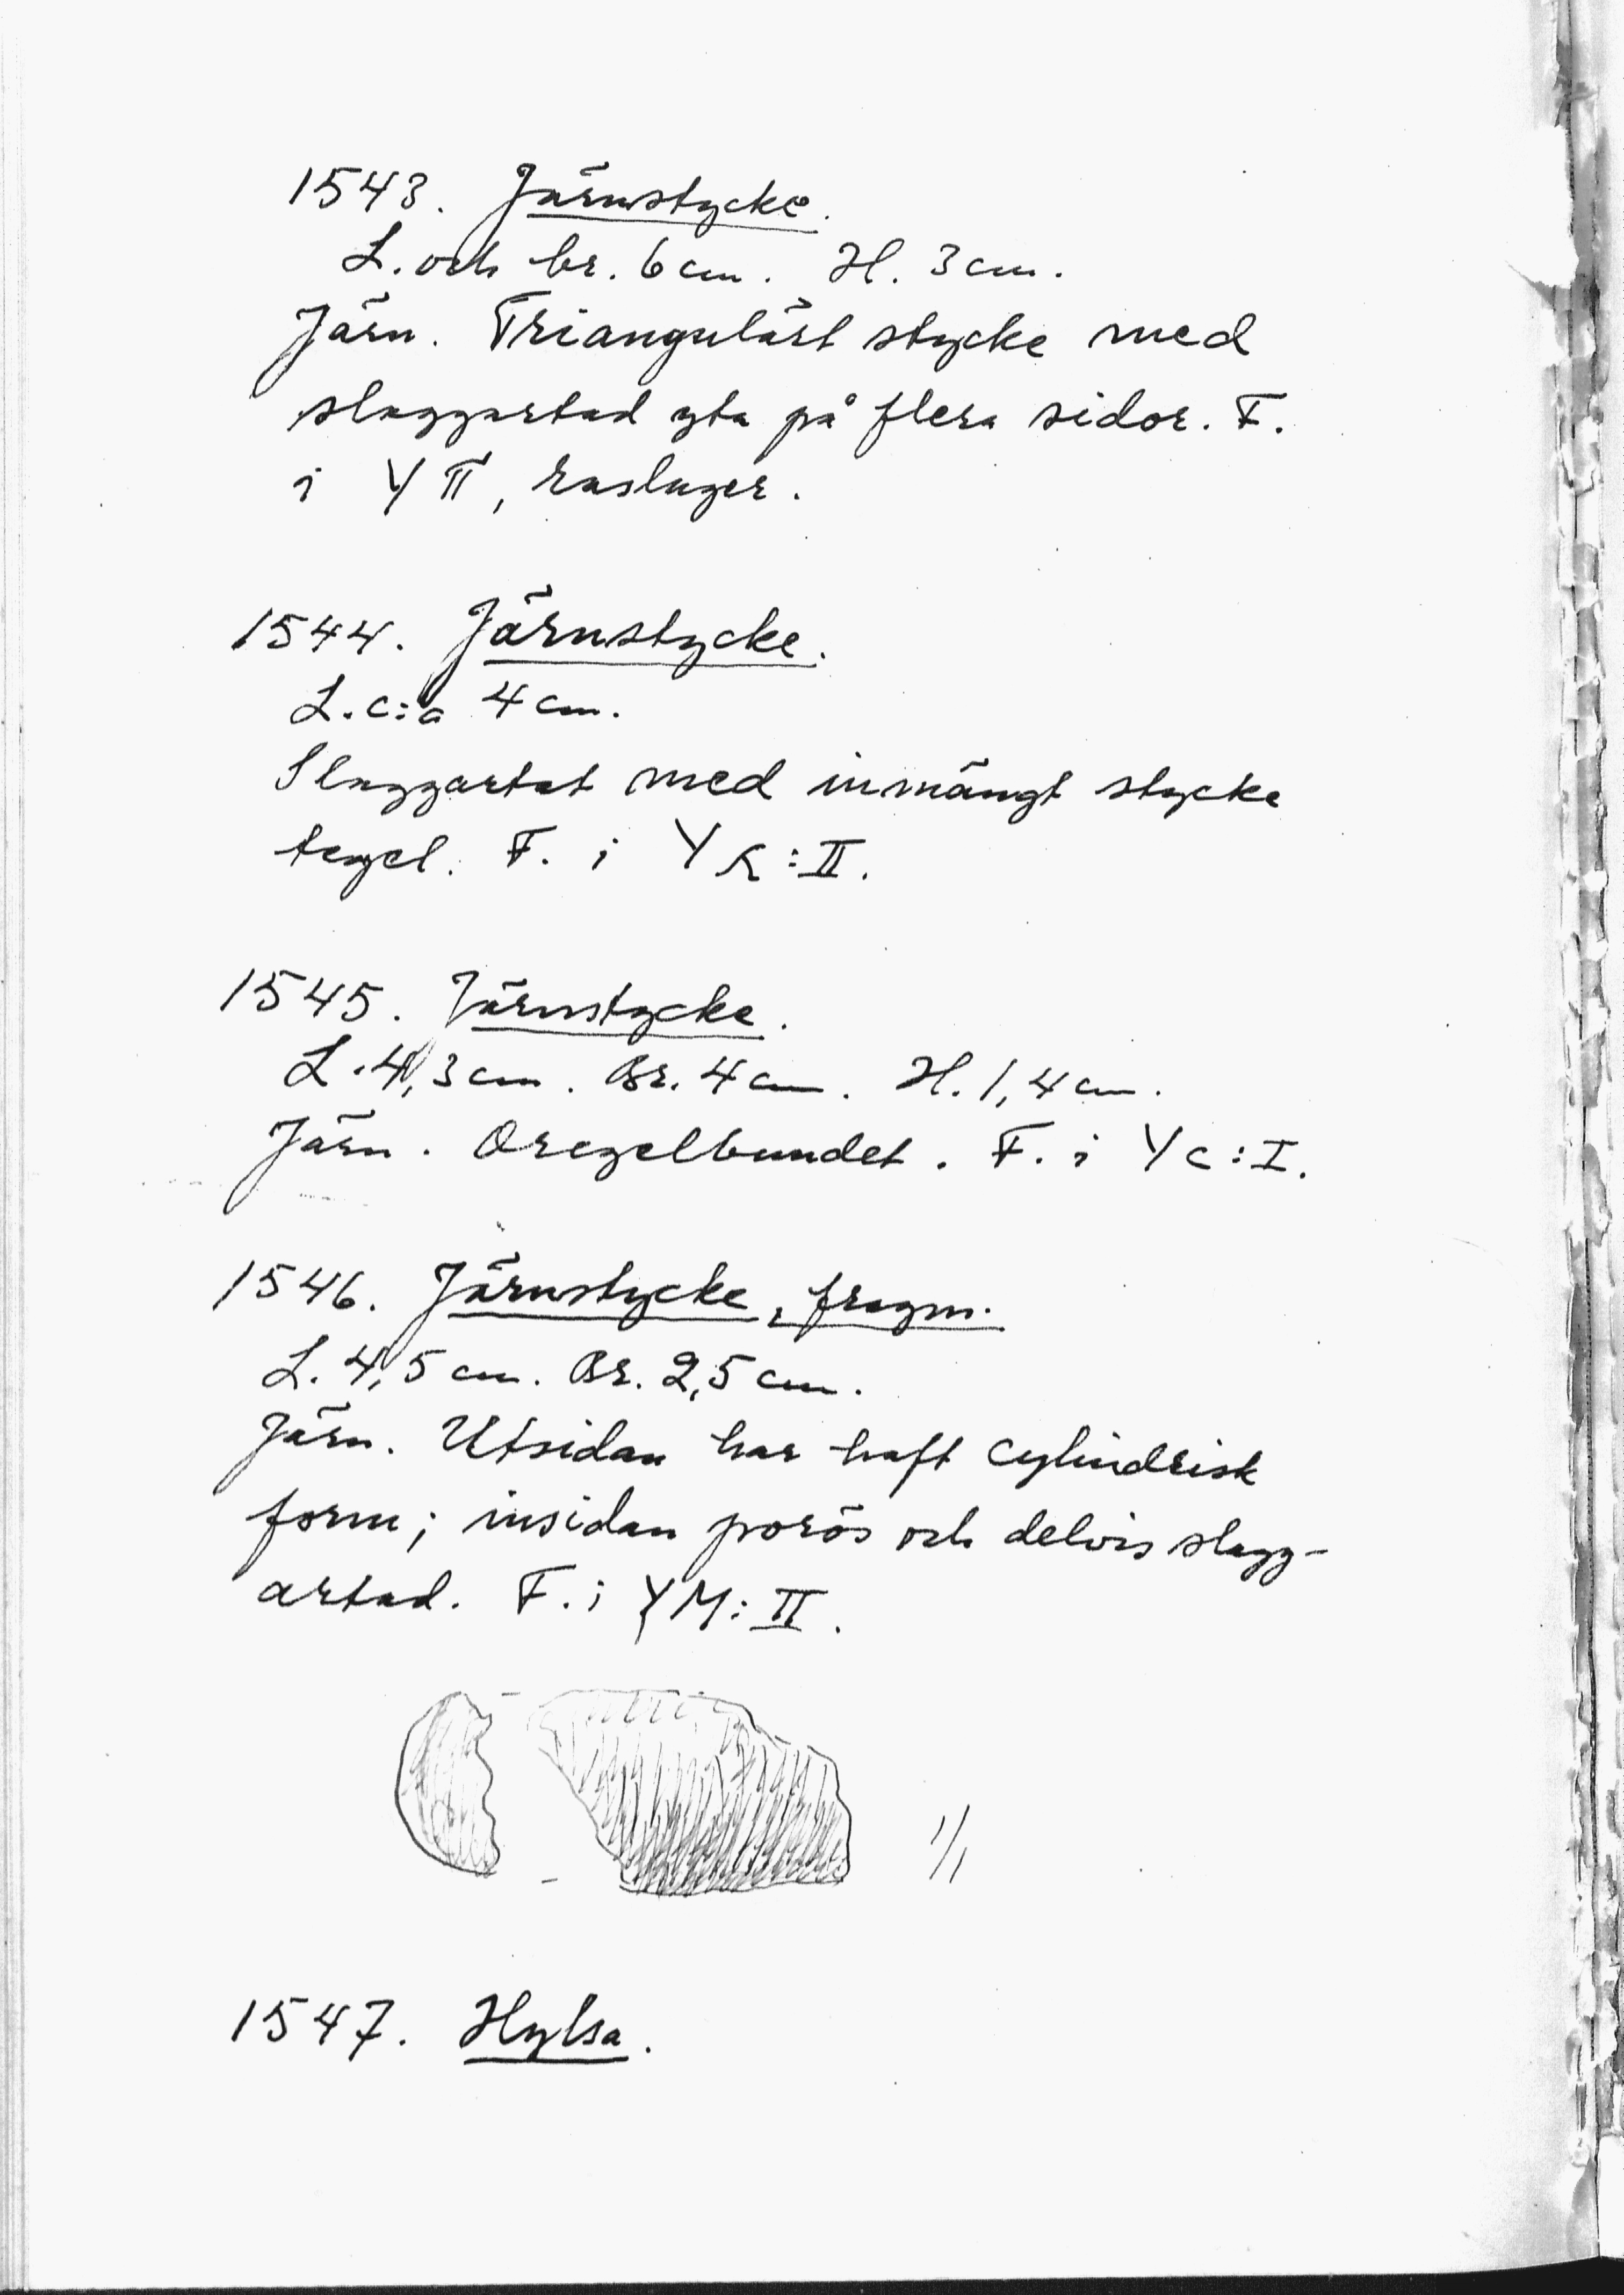 1543. Järnstycke.
L. och br. 6 cm. H. 3 cm.
Järn. Triangulärt stycke med
slaggartad yta på flera sidor. F.
i Y II, raslager.
1544. Järnstycke.
L. c:a 4 cm.
Slaggartat med inmängt stycke
tegel. F. i Y K:II.
1545. Järnstycke.
L. 4,3 cm. Br. 4 cm. H. 1,4 cm.
Järn. Oregelbundet. F. i Y C:I.
1546. Järnstycke, fragm.
L. 4,5 cm. Br. 2,5 cm.
Järn. Utsidan har haft cylindrisk
form; insidan porös och delvis slagg-
artad. F. i Y M:II.
1/1
1547. Hylsa.